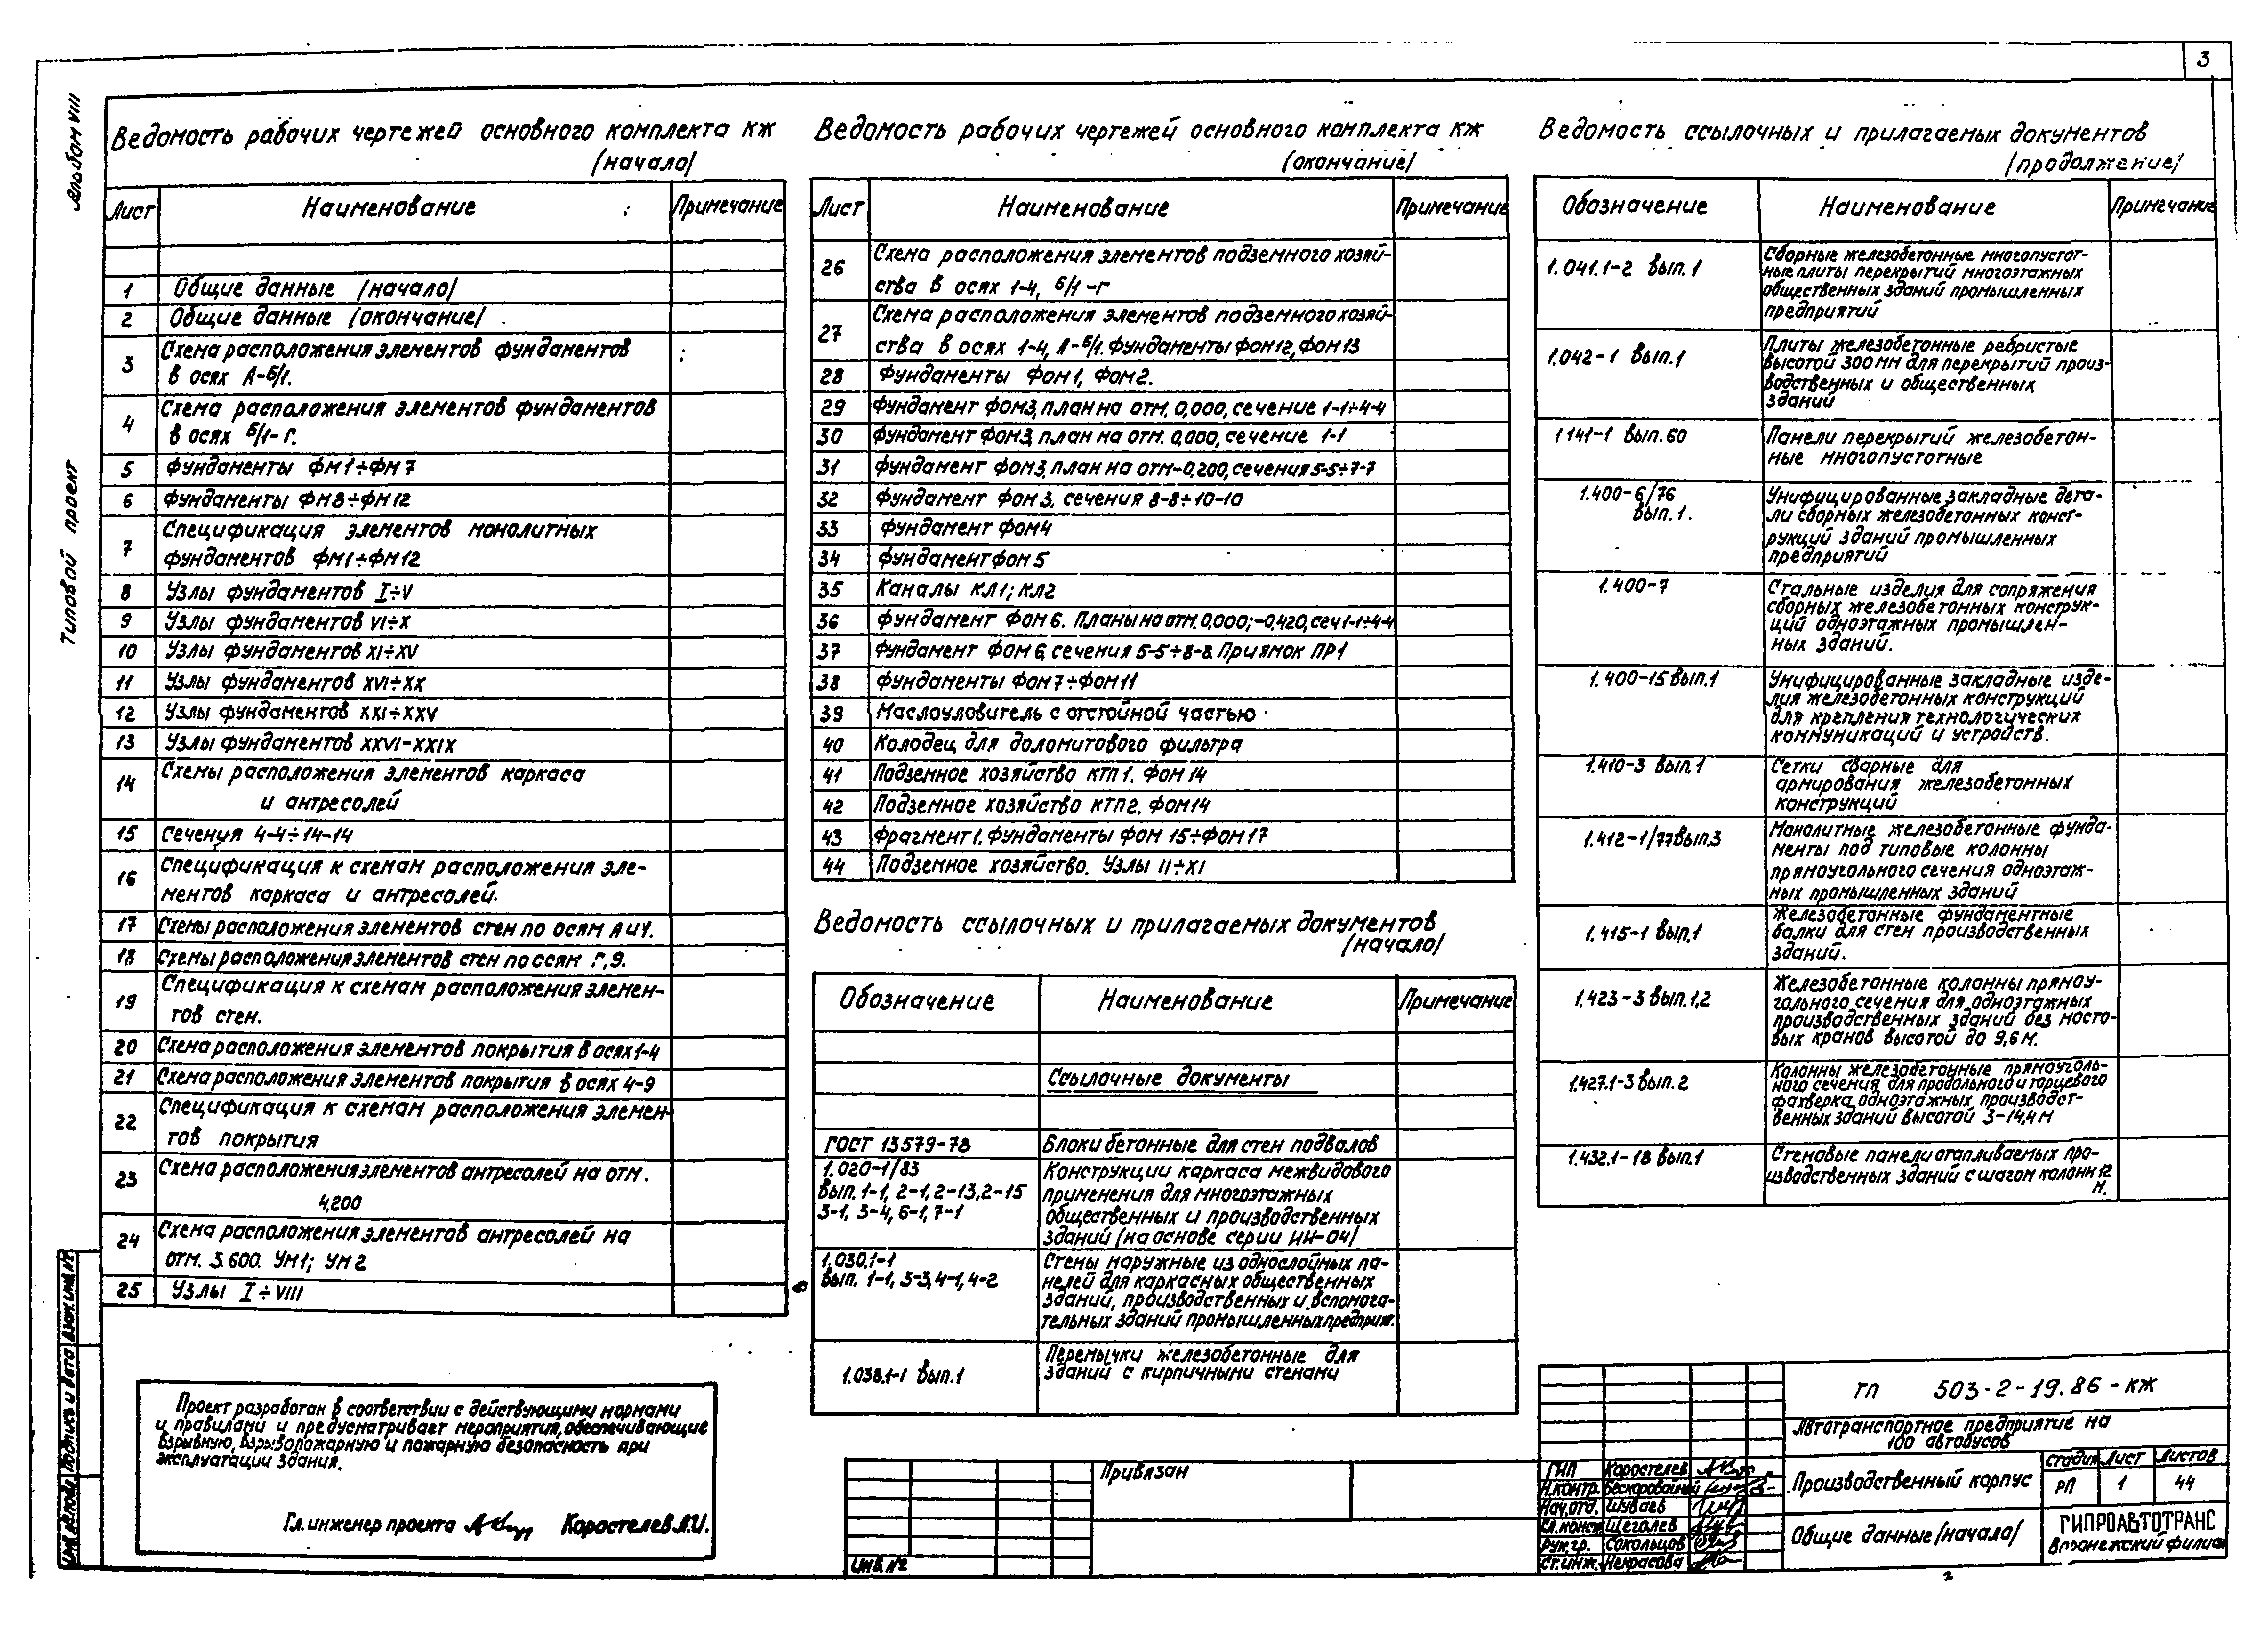 3
Альбом VIII
Типовой проект
Ведомость рабочих чертежей основного комплекта КЖ
/начало/
Лист Наименование Примечание
1 Общие данные /начало/
2 Общие данные /окончание/
3 Схема расположения элементов фундаментов
в осях А-Б/1.
4 Схема расположения элементов фундаментов
в осях Б/1-Г.
5 Фундаменты ФМ1÷ФМ7
6 Фундаменты ФМ8÷ФМ12
7 Спецификация элементов монолитных
фундаментов ФМ1÷ФМ12
8 Узлы фундаментов I÷V
9 Узлы фундаментов VI÷X
10 Узлы фундаментов XI÷XV
11 Узлы фундаментов XVI÷XX
12 Узлы фундаментов XXI÷XXV
13 Узлы фундаментов XXVI-XXIX
14 Схемы расположения элементов каркаса
и антресолей
15 Сечения 4-4÷14-14
16 Спецификация к схемам расположения эле-
ментов каркаса и антресолей.
17 Схемы расположения элементов стен по осям А и 1.
18 Схемы расположения элементов стен по осям Г, 9.
19 Спецификация к схемам расположения элемен-
тов стен.
20 Схема расположения элементов покрытия в осях 1-4
21 Схема расположения элементов покрытия в осях 4-9
22 Спецификация к схемам расположения элемен-
тов покрытия
23 Схема расположения элементов антресолей на отм.
4,200
24 Схема расположения элементов антресолей на
отм. 3.600. УМ1; УМ2
25 Узлы I÷VIII
Проект разработан в соответствии с действующими нормами
и правилами и предусматривает мероприятия, обеспечивающие
взрывную, взрывопожарную и пожарную безопасность при
эксплуатации здания.
Гл. инженер проекта Коростелев Л.И.
Инв. № подл. Подпись и дата Взам. инв. №
Ведомость рабочих чертежей основного комплекта КЖ
/окончание/
Лист Наименование Примечание
26 Схема расположения элементов подземного хозяй-
ства в осях 1-4, Б/1-Г
27 Схема расположения элементов подземного хозяй-
ства в осях 1-4, А-Б/1. Фундаменты ФОМ12, ФОМ13
28 Фундаменты ФОМ1, ФОМ2.
29 Фундамент ФОМ3, план на отм. 0,000, сечение 1-1÷4-4
30 Фундамент ФОМ3, план на отм. 0,000, сечение 1-1
31 Фундамент ФОМ3, план на отм-0,200, сечения 5-5÷7-7
32 Фундамент ФОМ3. сечения 8-8÷10-10
33 Фундамент ФОМ4
34 Фундамент ФОМ5
35 Каналы КЛ1; КЛ2
36 Фундамент ФОМ6. Планы на отм. 0,000; -0,420, сеч 1-1÷4-4
37 Фундамент ФОМ6, сечения 5-5÷8-8. Приямок ПР1
38 Фундаменты ФОМ7÷ФОМ11
39 Маслоуловитель с отстойной частью
40 Колодец для доломитового фильтра
41 Подземное хозяйство КТП1. ФОМ14
42 Подземное хозяйство КТП2. ФОМ14
43 Фрагмент 1. Фундаменты ФОМ 15÷ФОМ17
44 Подземное хозяйство. Узлы II÷XI
Ведомость ссылочных и прилагаемых документов
/начало/
Обозначение Наименование Примечание
Ссылочные документы
ГОСТ 13579-78 Блоки бетонные для стен подвалов
1.020-1/83 Конструкции каркаса межвидового
вып. 1-1, 2-1, 2-13, 2-15 применения для многоэтажных
3-1, 3-4, 6-1, 7-1 общественных и производственных
зданий /на основе серии ИИ-04/
1.030.1-1 Стены наружные из однослойных па-
вып. 1-1, 3-3, 4-1, 4-2 нелей для каркасных общественных
зданий, производственных и вспомога-
тельных зданий промышленных предприят.
1.038.1-1 вып.1 Перемычки железобетонные для
зданий с кирпичными стенами
Привязан
Инв. №
Ведомость ссылочных и прилагаемых документов
/продолжение/
Обозначение Наименование Примечание
1.041.1-2 вып.1 Сборные железобетонные многопустот-
ные плиты перекрытий многоэтажных
общественных зданий промышленных
предприятий
1.042-1 вып.1 Плиты железобетонные ребристые
высотой 300мм для перекрытий произ-
водственных и общественных
зданий
1.141-1 вып.60 Панели перекрытий железобетон-
ные многопустотные
1.400-6/76 Унифицированные закладные дета-
вып.1. ли сборных железобетонных конст-
рукций зданий промышленных
предприятий
1.400-7 Стальные изделия для сопряжения
сборных железобетонных конструк-
ций одноэтажных промышлен-
ных зданий.
1.400-15 вып.1 Унифицированные закладные изде-
лия железобетонных конструкций
для крепления технологических
коммуникаций и устройств.
1.410-3 вып.1 Сетки сварные для
армирования железобетонных
конструкций
1.412-1/77 вып.3 Монолитные железобетонные фунда-
менты под типовые колонны
прямоугольного сечения одноэтаж-
ных промышленных зданий
1.415-1 вып.1 Железобетонные фундаментные
балки для стен производственных
зданий.
1.423-3 вып.1,2 Железобетонные колонны прямоу-
гольного сечения для одноэтажных
производственных зданий без мосто-
вых кранов высотой до 9,6м.
1.427.1-3 вып.2 Колонны железобетонные прямоуголь-
ного сечения для продольного и торцевого
фахверка одноэтажных производст-
венных зданий высотой 3-14,4м
1.432.1-18 вып.1 Стеновые панели отапливаемых про-
изводственных зданий с шагом колонн 12
м.
ТП 503-2-19.86-КЖ
Автотранспортное предприятие на
100 автобусов
ГИП Коростелев
Н.контр. Бескоровайный
Нач.отд. Шуваев
Гл.констр. Щеголев
Рук.гр. Сокольцов
Ст.инж. Некрасова
Производственный корпус
Стадия Лист Листов
РП 1 44
Общие данные /начало/
ГИПРОАВТОТРАНС
Воронежский филиал
2